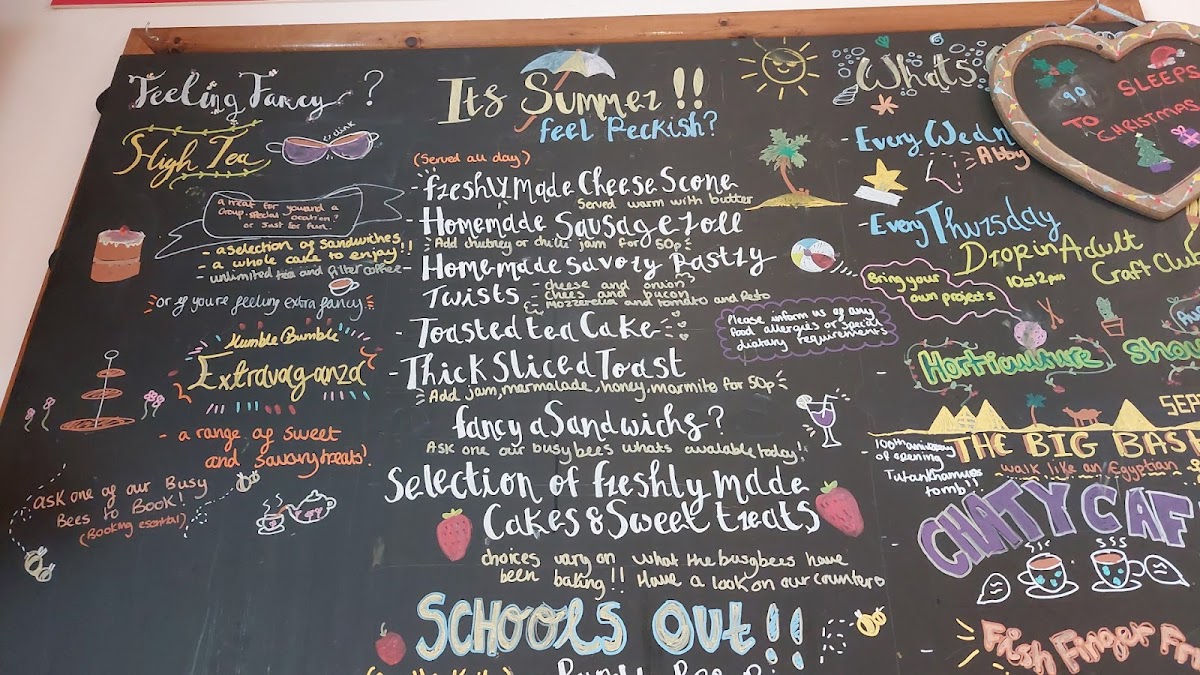 Feeling Fancy ?
High Tea
clink
a meat for you and a
Group. special ocation?
or Just for fun
- a selection of sandwiches
- a whole cake to enjoy!!
- unlimited tea and filter coffee
"or if you're feeling extra fancy"
Humble Bumble
Extravaganza
- a range of sweet
and savoury treats!
ask one of our Busy
Bees to Book!
(Booking esential)
Its Summer!!
feel Peckish?
(Served all day)
- freshly Made Cheese Scone
Served warm with butter
- Homemade Sausage roll
Add chutney or chilli jam for 50p
- Homemade savory Pastry
Twists - cheese and onion
- chees and bacon
- Mozzerella and tomato and Pesto
- Toasted tea Cake
- Thick Sliced Toast
Add jam, marmalade, honey, marmite for 50p
fancy a Sandwichs?
Ask one our busy bees whats available today!
Selection of freshly made
Cakes & Sweet treats
choices vary on what the busybees have
been baking!! Have a look on our counters
Schools Out!!
Please inform us of any
food allergies or special
dietary requirements
Whats
- Every Wedn
Abby
- Every Thursday
Drop in Adult
10-12pm Craft Club
Bring your
own projects
- Horticulture Show
SEP
100th anniversary
of opening
Tutankhamuns
tomb!!
THE BIG BAS
walk like an Egyptian
CHATY CAF
Fish Finger Fri
90 SLEEPS
TO CHRISTMAS